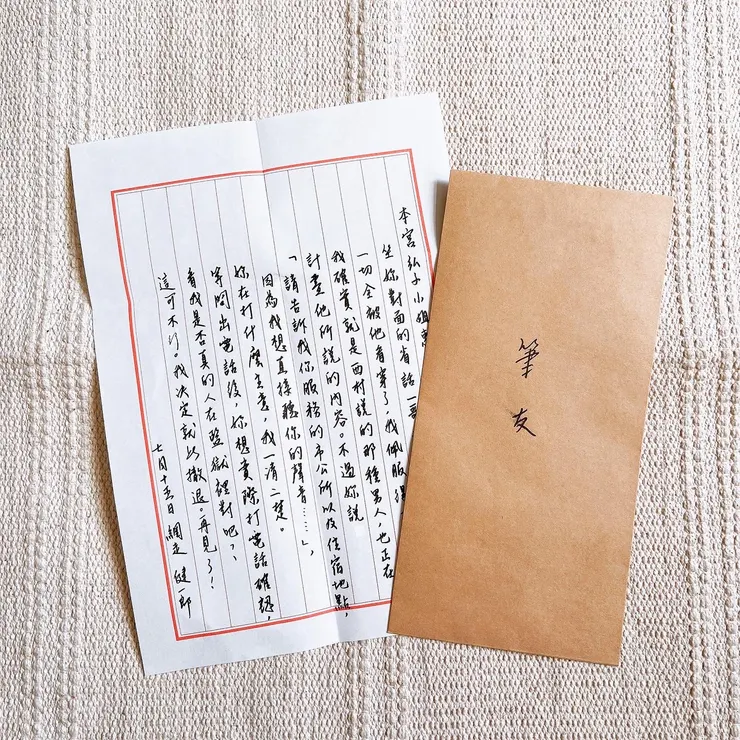 本宮弘子小姐
坐妳對面的有話一
一切全被他看穿了，我佩服得
我確實就是西村說的那種男人，也正在
計畫他所說的內容。不過妳說
「請告訴我你服務的市公所以及住宿地點，
因為我想直接聽你的聲音……」，
妳在打什麼主意，我一清二楚。
等問出電話後，妳想實際打電話確認，
看我是否真的人在監獄裡對吧？
這可不行。我決定就此撤退。再見了！
七月十五日 網走 健一郎
筆友